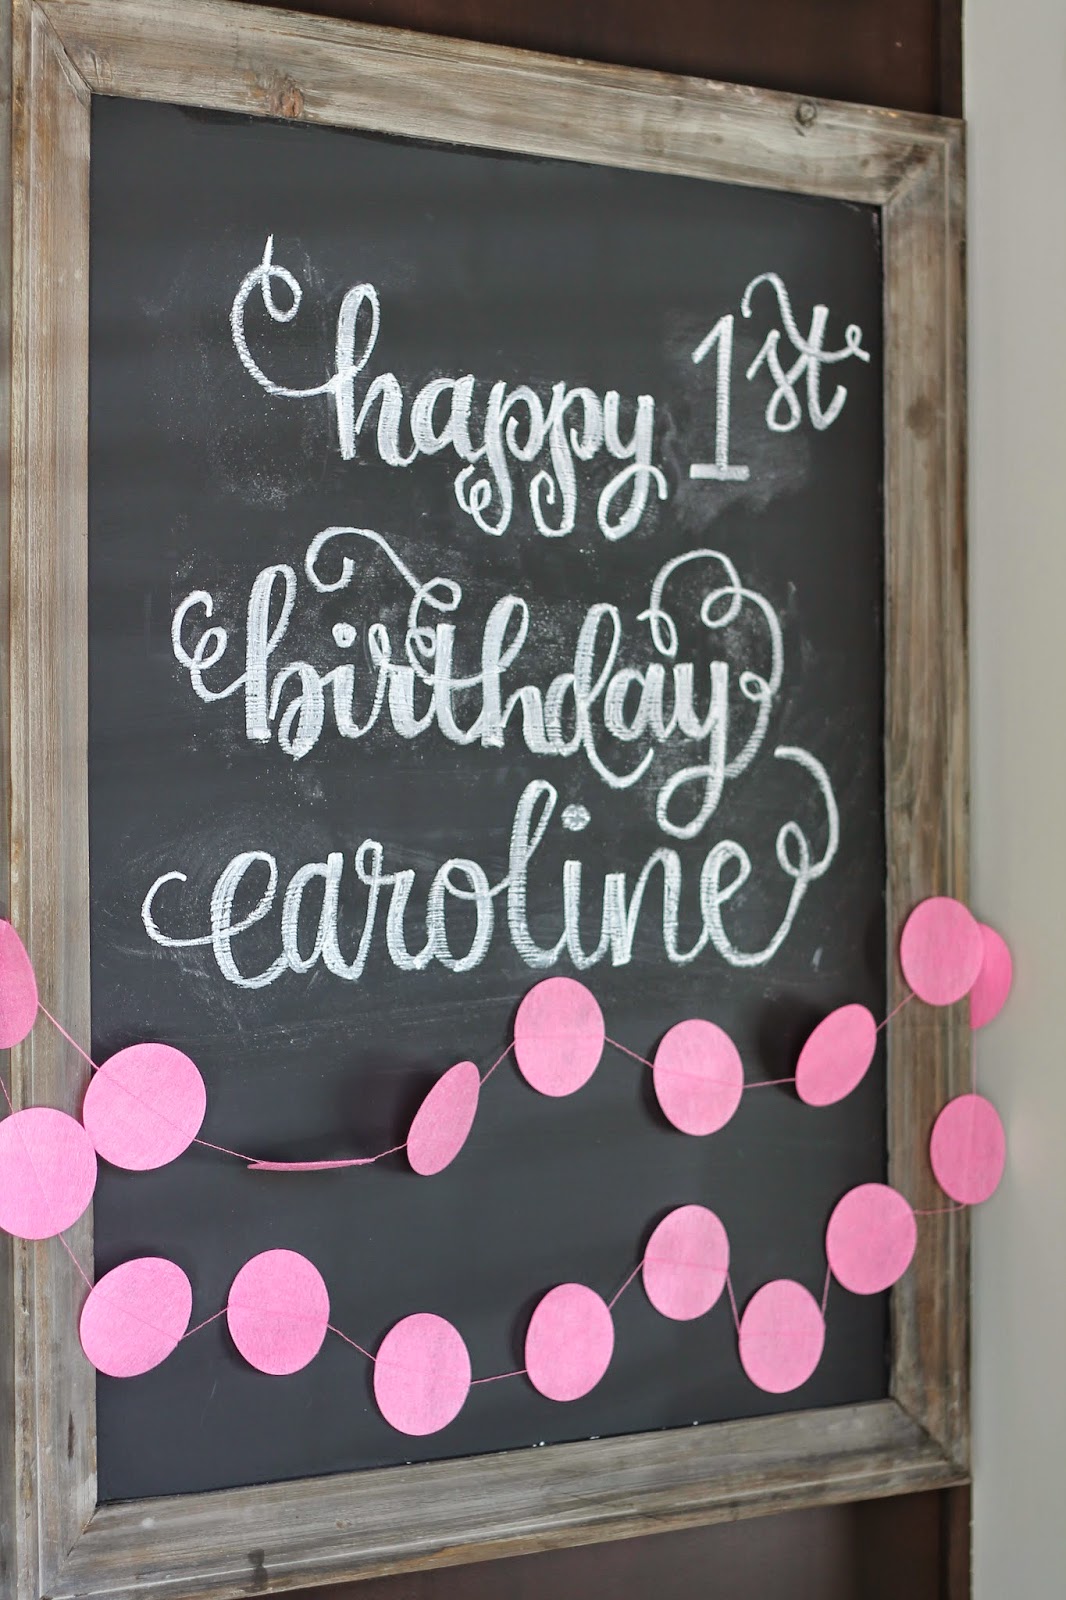 happy 1st
birthday
caroline